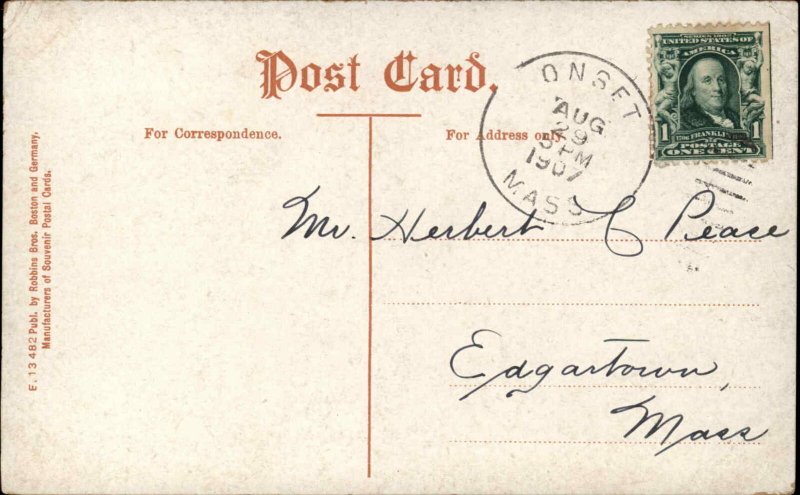 Post Card.
For Correspondence.
For Address only.
E. 13482 Publ. by Robbins Bros. Boston and Germany,
Manufacturers of Souvenir Postal Cards.
ONSET
AUG
29
PM
1907
MASS
SERIES 1902
UNITED STATES OF
AMERICA
1 FRANKLIN 1
POSTAGE
ONE CENT
Mr. Herbert C Pease
Edgartown,
Mass